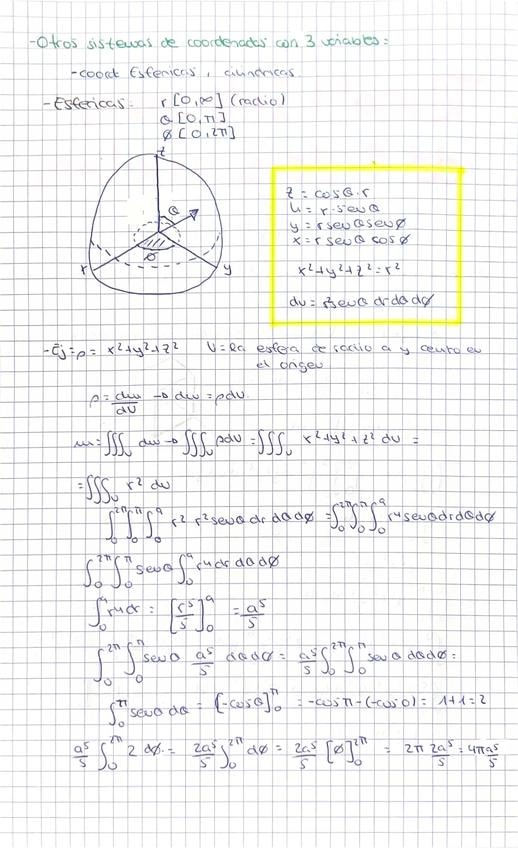 -Otros sistemas de coordenadas con 3 variables:
-coord Esfericas, cilindricas.
-Esfericas: r [0,∞] (radio)
θ [0,π]
ø [0,2π]
z
θ
ø
x
y
z = cosθ·r
u = r·senθ
y = r senθ senø
x = r senθ cosø
x²+y²+z² = r²
dv = r² senθ dr dθ dø
-Ej: ρ = x²+y²+z² V = la esfera de radio a y centro en
el origen
ρ = dm/dV → dm = ρdv.
m = ∭ᵥ dm → ∭ᵥ ρdv = ∭ᵥ x²+y²+z² dv =
= ∭ᵥ r² dv
∫₀^2π ∫₀^π ∫₀^a r² r² senθ dr dθ dø = ∫₀^2π ∫₀^π ∫₀^a r⁴ senθ dr dθ dø
∫₀^2π ∫₀^π senθ ∫₀^a r⁴ dr dθ dø
∫₀^a r⁴ dr = [r⁵/5]₀^a = a⁵/5
∫₀^2π ∫₀^π senθ a⁵/5 dθ dø = a⁵/5 ∫₀^2π ∫₀^π senθ dθ dø =
∫₀^π senθ dθ = [-cosθ]₀^π = -cosπ-(-cos0) = 1+1=2
a⁵/5 ∫₀^2π 2 dø = 2a⁵/5 ∫₀^2π dø = 2a⁵/5 [ø]₀^2π = 2π 2a⁵/5 = 4πa⁵/5